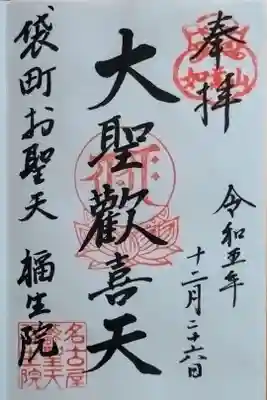 奉拝
令和五年
十二月二十六日
大聖歡喜天
袋町お聖天 福生院
名古屋